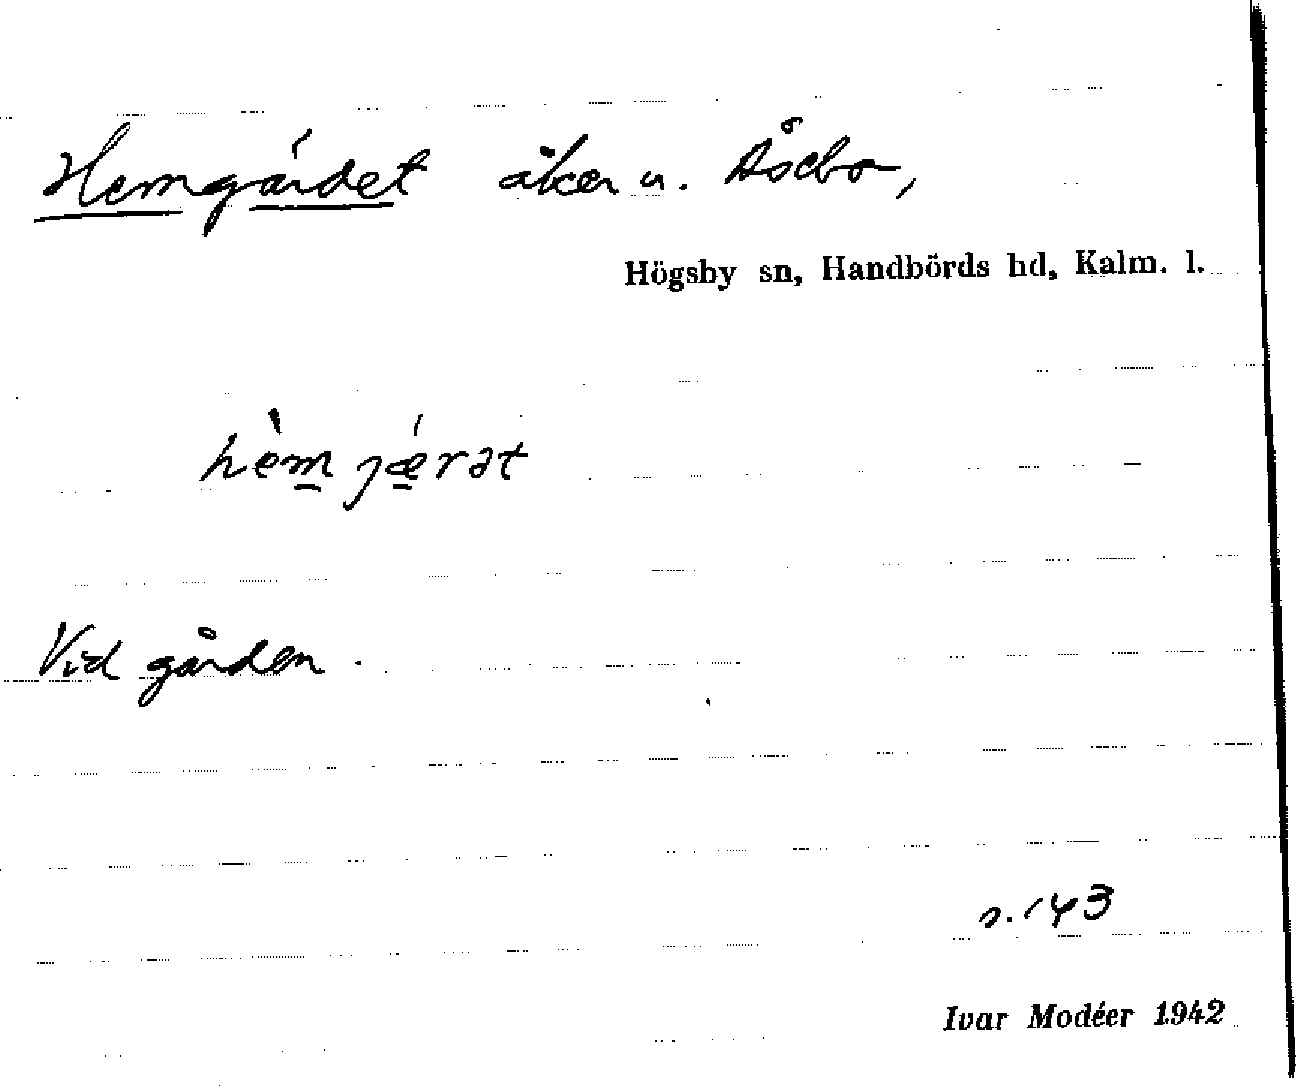 Hemgärdet åker u. Åsebo,
Högsby sn, Handbörds hd, Kalm. l.
hèm jærət
Vid gården.
s. 143
Ivar Modéer 1942